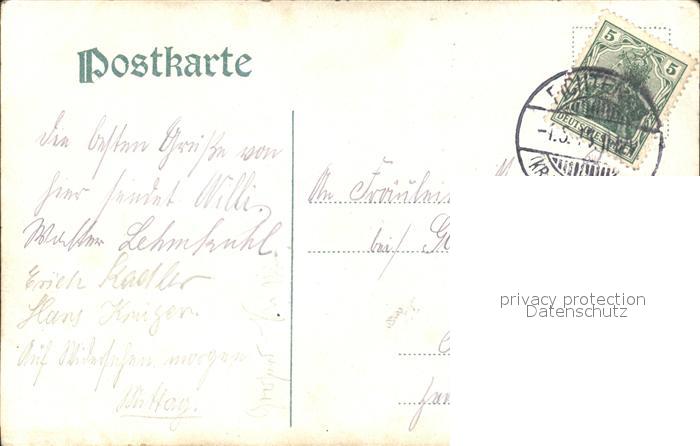 Postkarte
5 5
DEUTSCHES REICH
Die besten Grüße von
hier sendet Willi,
Walter Lehmkuhl.
Erich Kadler
Hans Krüger.
Auf Wiedersehen morgen
Mittag.
An Fräulein
bei
privacy protection
Datenschutz